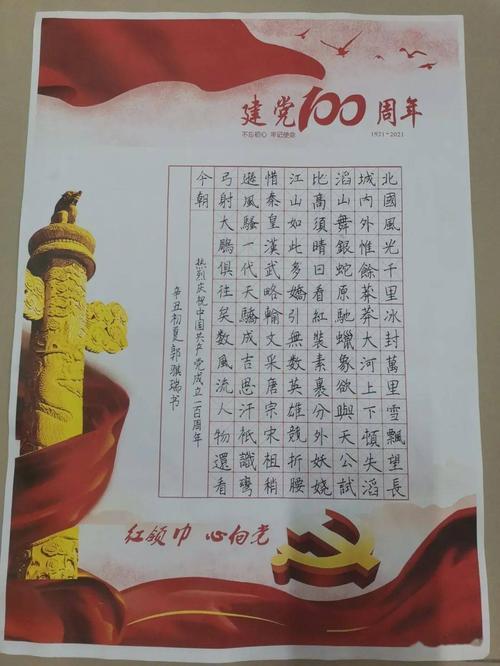 建党100周年
不忘初心 牢记使命
1921*2021
北國風光千里冰封萬里雪飄望長
城內外惟餘莽莽大河上下頓失滔
滔山舞銀蛇原馳蠟象欲與天公試
比高須晴日看紅裝素裹分外妖嬈
江山如此多嬌引無數英雄競折腰
惜秦皇漢武略輸文采唐宗宋祖稍
遜風騷一代天驕成吉思汗祇識彎
弓射大鵰俱往矣數風流人物還看
今朝
热烈庆祝中国共产党成立一百周年
辛丑初夏郭骐瑞书
红领巾 心向党